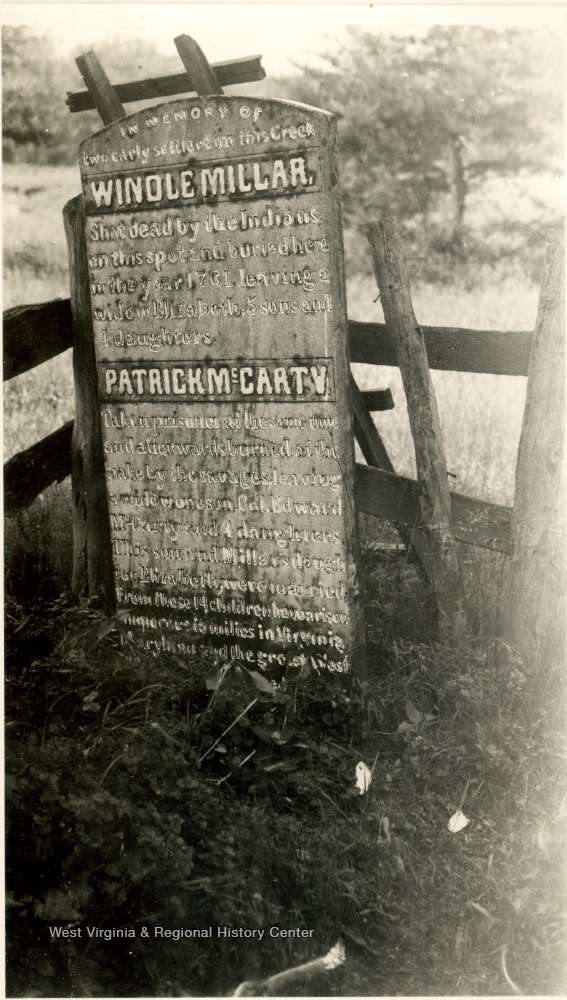 IN MEMORY OF
two early settlers on this Creek
WINDLE MILLAR,
Shot dead by the Indians
on this spot and buried here
in the year 1781, leaving a
widow Elizabeth, 5 sons and
4 daughters
PATRICK McCARTY
Taken prisoner at the same time
and afterwards burned at the
stake by the savages, leaving
a widow, one son, Col. Edward
McCarty, and 4 daughters.
This son and Millar's daugh-
ter Elizabeth, were married.
From these 14 children have arisen
numerous families in Virginia,
Maryland and the great West
West Virginia & Regional History Center